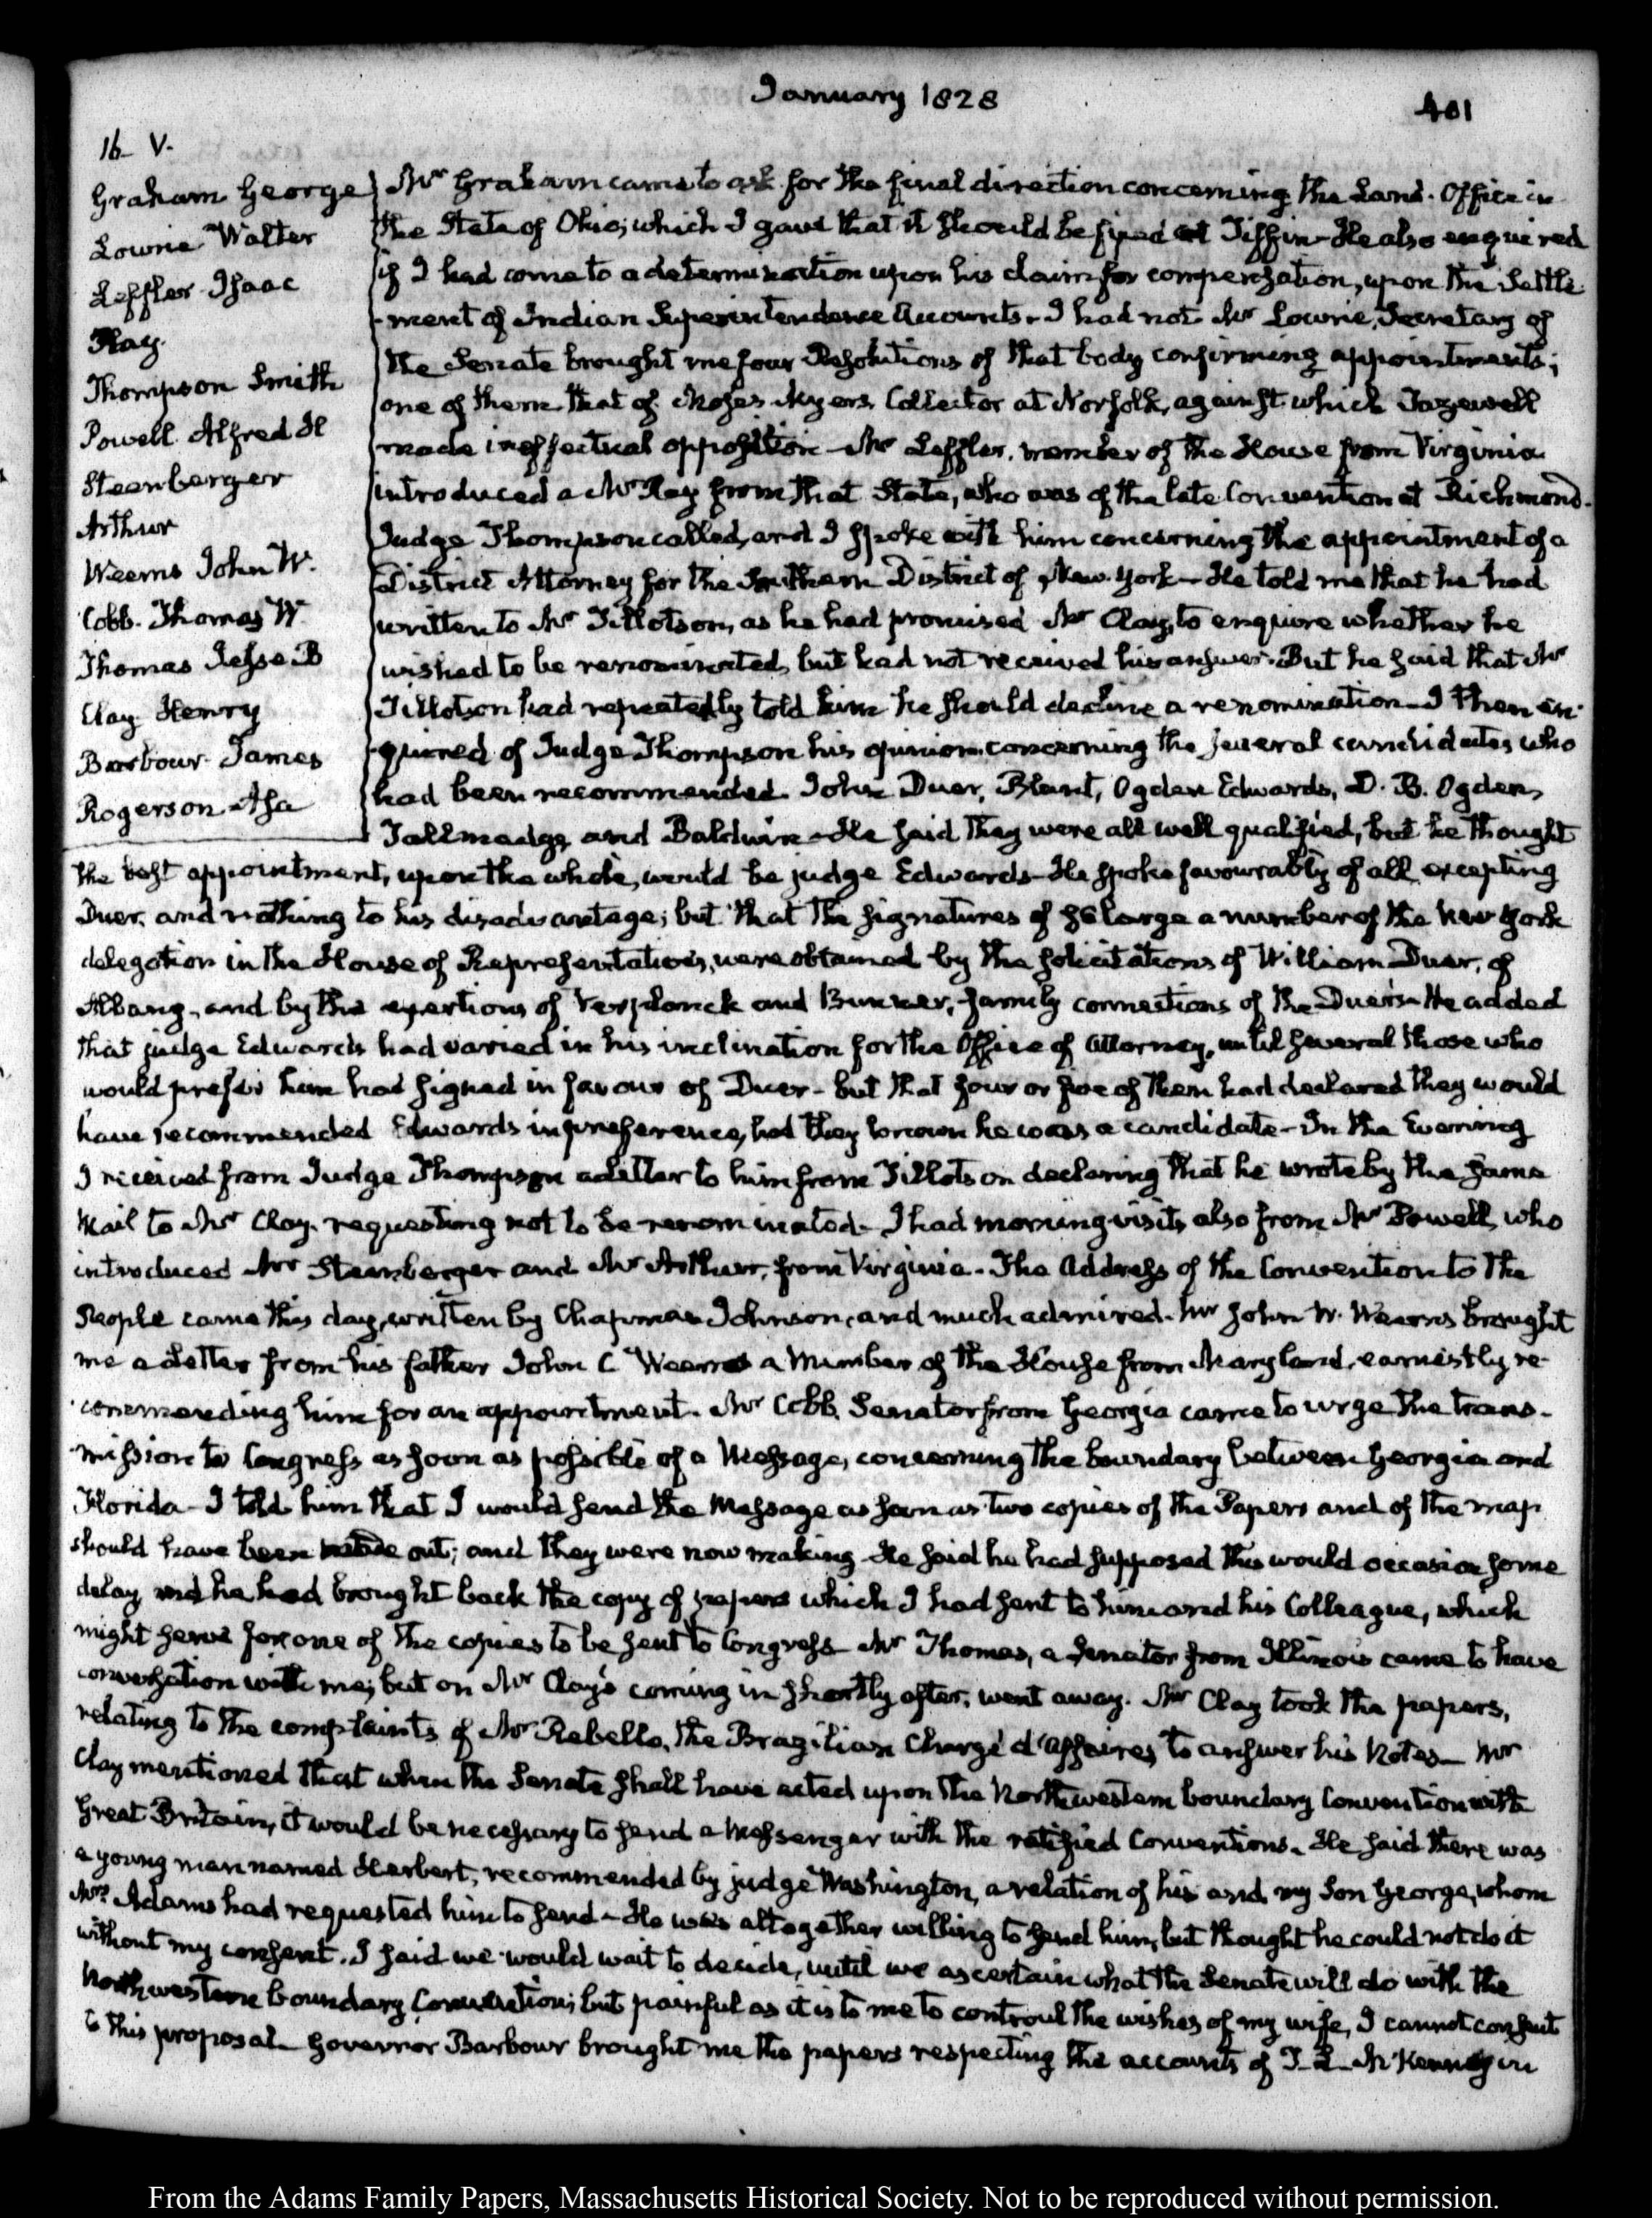 January 1828
401
16. V.
Graham George
Lowrie Walter
Leffler Isaac
Ray.
Thompson Smith
Powell Alfred H
Steenberger
Arthur
Weems John W.
Cobb. Thomas W.
Thomas Jesse B
Clay Henry
Barbour James
Rogerson Asa
Mr Graham came to ask for the final direction concerning the Land-Office in
the State of Ohio; which I gave that it should be fixed at Tiffin— He also enquired
if I had come to a determination upon his claim for compensation, upon the Settle-
-ment of Indian Superintendence Accounts. I had not. Mr Lowrie, Secretary of
the Senate brought me four Resolutions of that body confirming appointments;
one of them that of Moses Myers Collector at Norfolk, against which Tazewell
made ineffectual opposition— Mr Leffler, member of the House from Virginia
introduced a Mr Ray from that State, who was of the late Convention at Richmond.
Judge Thompson called, and I spoke with him concerning the appointment of a
District Attorney for the Southern District of New-York— He told me that he had
written to Mr Tillotson, as he had promised Mr Clay, to enquire whether he
wished to be renominated, but had not received his answer. But he said that Mr
Tillotson had repeatedly told him he should decline a renomination— I then en-
-quired of Judge Thompson his opinion concerning the several candidates who
had been recommended. John Duer, Blunt, Ogden Edwards, D. B. Ogden,
Tallmadge, and Baldwin— He said they were all well qualified, but he thought
the best appointment, upon the whole, would be judge Edwards— He spoke favourably of all excepting
Duer, and nothing to his disadvantage; but that the signatures of so large a number of the New York
delegation in the House of Representatives, were obtained by the solicitations of William Duer, of
Albany, and by the exertions of Verplanck and Bunner, family connections of the Duers— He added
that judge Edwards had varied in his inclination for the Office of Attorney, until several those who
would prefer him had signed in favour of Duer— but that four or five of them had declared they would
have recommended Edwards in preference, had they known he was a candidate— In the Evening
I received from Judge Thompson a Letter to him from Tillotson declaring that he wrote by the same
Mail to Mr Clay. requesting not to be renominated— I had morning visits also from Mr Powell, who
introduced Mr Steenberger and Mr Arthur, from Virginia— The Address of the Convention to the
People came this day, written by Chapman Johnson, and much admired. Mr John W. Weems brought
me a Letter from his father John C Weems a Member of the House from Maryland, earnestly re-
-commending him for an appointment. Mr Cobb, Senator from Georgia came to urge the trans-
-mission to Congress as soon as possible of a Message, concerning the boundary between Georgia and
Florida— I told him that I would send the Message as soon as two copies of the Papers and of the map
should have been made out; and they were now making— He said he had supposed this would occasion some
delay, and he had brought back the copy of papers which I had sent to him and his Colleague, which
might serve for one of the copies to be sent to Congress— Mr Thomas, a Senator from Illinois came to have
conversation with me; but on Mr Clay's coming in shortly after, went away. Mr Clay took the papers,
relating to the complaints of Mr Rebello, the Brazilian Chargé d'Affaires, to answer his Notes— Mr
Clay mentioned that when the Senate shall have acted upon the Northwestern boundary Convention with
Great Britain, it would be necessary to send a Messenger with the ratified Conventions. He said there was
a young man named Herbert, recommended by judge Washington, a relation of his and my Son George, whom
Mrs Adams had requested him to send— He was altogether willing to send him, but thought he could not do it
without my consent. I said we would wait to decide, until we ascertain what the Senate will do with the
Northwestern boundary Convention; but painful as it is to me to controul the wishes of my wife, I cannot consent
to this proposal— Governor Barbour brought me the papers respecting the accounts of T. L. McKenney in
From the Adams Family Papers, Massachusetts Historical Society. Not to be reproduced without permission.